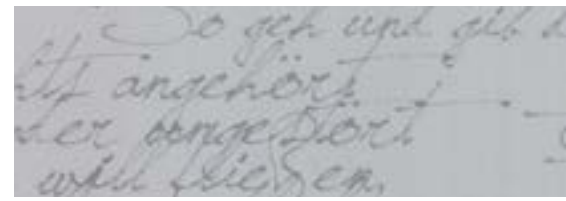 So geh und gib
angehört
ungestört
will fließen,